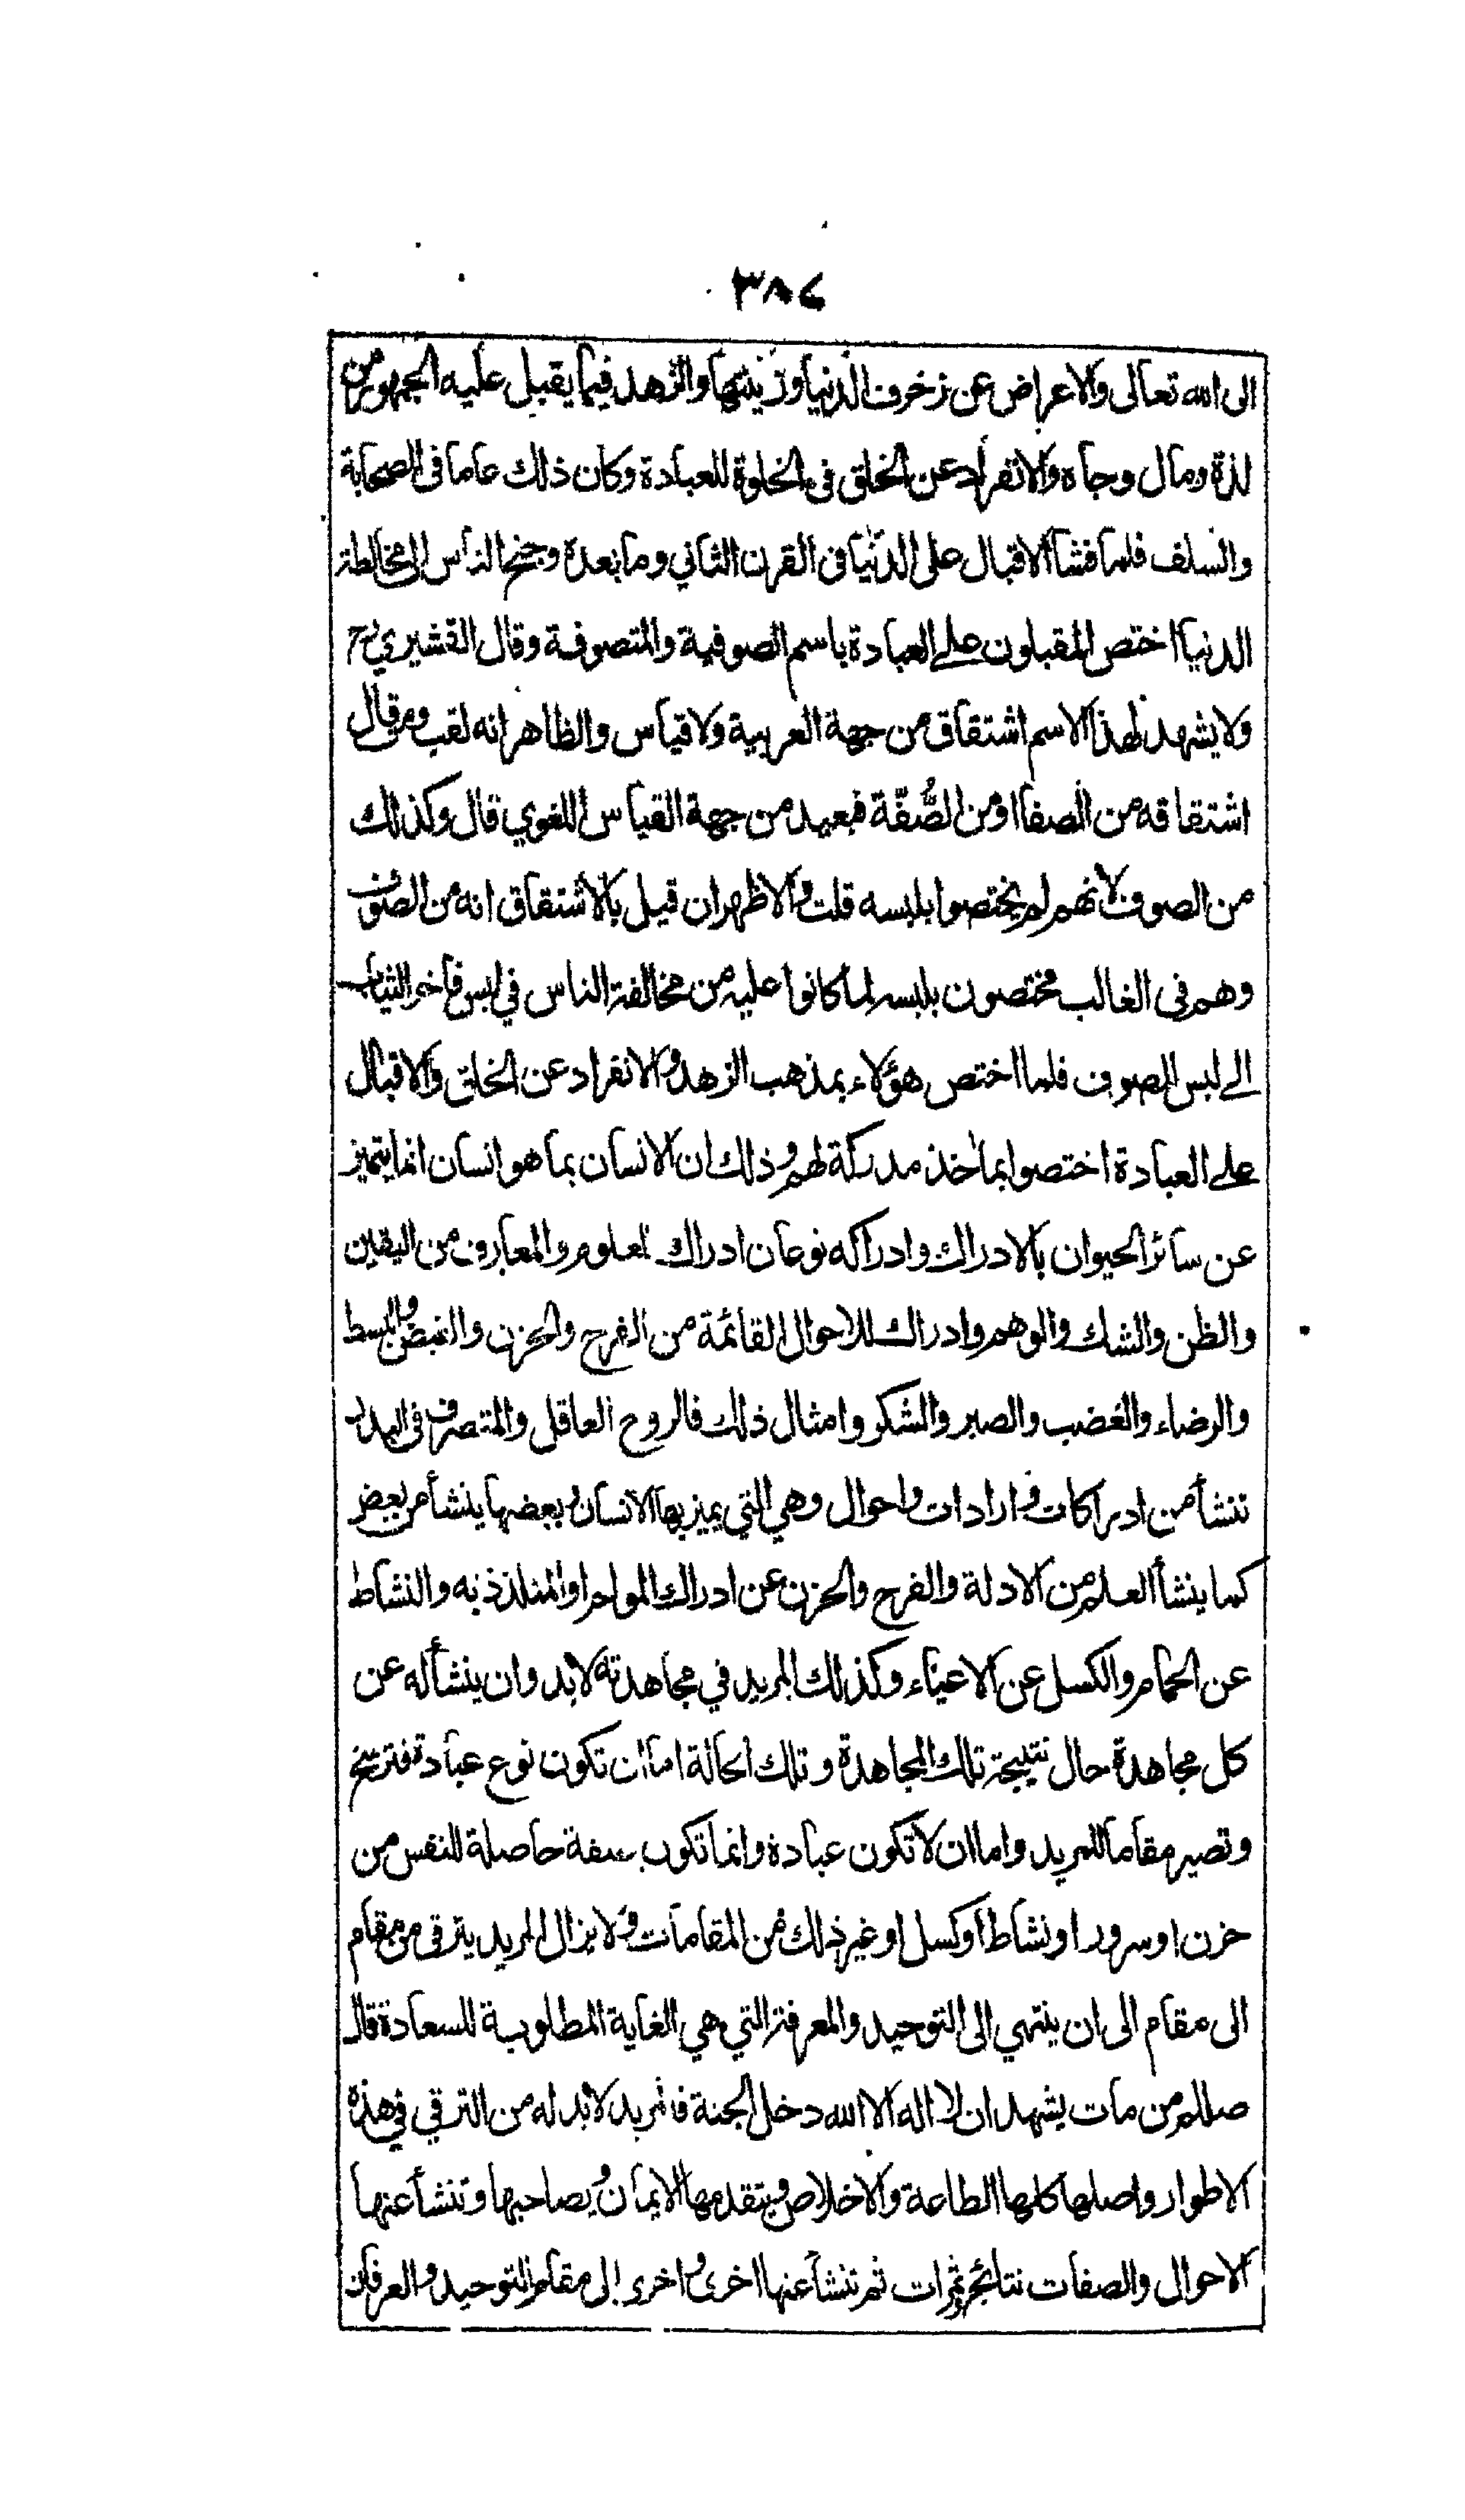 ٣٨٤
الى الله تعالى والاعراض عن زخرف الدنيا وزينتها والزهد فيما يقبل عليه الجمهور من
لذة ومال وجاه والانفراد عن الخلق في الخلوة للعبادة وكان ذلك عاما في الصحابة
والسلف فلما فشا الاقبال على الدنيا في القرن الثاني وما بعده وجنح الناس الى مخالطة
الدنيا اختص المقبلون على العبادة باسم الصوفية والمتصوفة وقال القشيري رح
ولا يشهد لهذا الاسم اشتقاق من جهة العربية ولا قياس والظاهر انه لقب ومن قال
اشتقاقه من الصفا او من الصُّفّة فبعيد من جهة القياس اللغوي قال وكذلك
من الصوف لانهم لم يختصوا بلبسه قلت والاظهر ان قيل بالاشتقاق انه من الصوف
وهم في الغالب مختصون بلبسه لما كانوا عليه من مخالفة الناس في لبس فاخر الثياب
الى لبس الصوف فلما اختص هؤلاء بمذهب الزهد والانفراد عن الخلق والاقبال
على العبادة اختصوا بمآخذ مدركة لهم وذلك ان الانسان بما هو انسان انما يتميز
عن سائر الحيوان بالادراك وادراكه نوعان ادراك لعلوم والمعارف من اليقين
والظن والشك والوهم وادراك للاحوال القائمة من الفرح والحزن والقبض والبسط
والرضاء والغضب والصبر والشكر وامثال ذلك فالروح العاقل والمتصرف في البدن
تنشأ من ادراكات وارادات واحوال وهي التي يميز بها الانسان وبعضها ينشأ من بعض
كما ينشأ العلم من الادلة والفرح والحزن عن ادراك المولم او المتلذذ به والنشاط
عن الحمام والكسل عن الاعياء وكذلك المريد في مجاهدته لابد وان ينشأ له عن
كل مجاهدة حال نتيجة تلك المجاهدة وتلك الحالة اما ان تكون نوع عبادة فترسخ
وتصير مقاما للمريد واما ان لا تكون عبادة وانما تكون صفة حاصلة للنفس من
حزن او سرور او نشاط او كسل او غير ذلك من المقامات ولا يزال المريد يترقى من مقام
الى مقام الى ان ينتهي الى التوحيد والمعرفة التي هي الغاية المطلوبة للسعادة قال
صللم من مات يشهد ان لا اله الا الله دخل الجنة فالمريد لابد له من الترقي في هذه
الاطوار واصلها كلها الطاعة والاخلاص ويتقدمها الايمان ويصاحبها وتنشأ عنها
الاحوال والصفات نتائج وثمرات ثم تنشأ عنها اخرى واخرى الى مقام التوحيد والعرفان